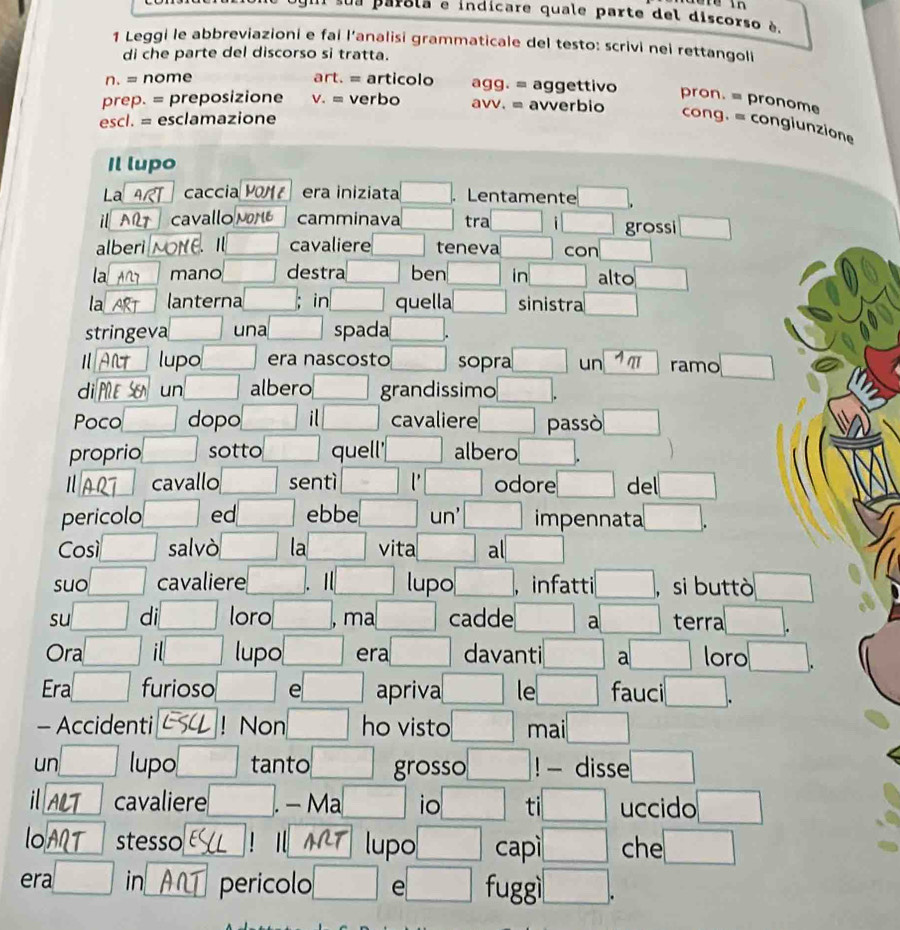 parola e indicare quale parte del discorso è.
1 Leggi le abbreviazioni e fai l'analisi grammaticale del testo: scrivi nei rettangoli
di che parte del discorso si tratta.
n. = nome art. = articolo agg. = aggettivo pron. = pronome
prep. = preposizione v. = verbo avv. = avverbio cong. = congiunzione
escl. = esclamazione
Il lupo
La ART caccia NOME era iniziata . Lentamente ,
il ART cavallo NOME camminava tra i grossi
alberi NOME. Il cavaliere teneva con
la ART mano destra ben in alto
la ART lanterna ; in quella sinistra
stringeva una spada .
Il ART lupo era nascosto sopra un ART ramo
di PRE un albero grandissimo .
Poco dopo il cavaliere passò
proprio sotto quell' albero .
Il ART cavallo sentì l' odore del
pericolo ed ebbe un' impennata .
Così salvò la vita al
suo cavaliere . Il lupo , infatti , si buttò
su di loro , ma cadde a terra .
Ora il lupo era davanti a loro .
Era furioso e apriva le fauci .
– Accidenti ESCL ! Non ho visto mai
un lupo tanto grosso ! – disse
il ART cavaliere . – Ma io ti uccido
lo ART stesso ESCL ! Il ART lupo capì che
era in ART pericolo e fuggì .